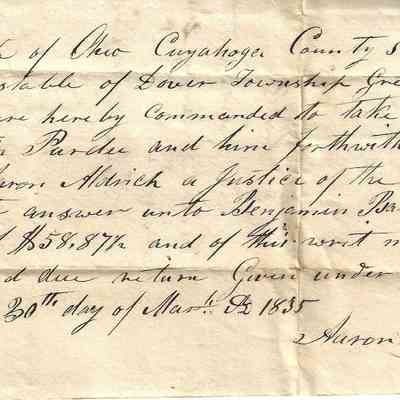 of Ohio Cuyahoga County s
stable of Dover Township Gre
are hereby commanded to take
Pardee and him forthwith
aron Aldrich a Justice of the
answer unto Benjamin Ba
$58,87½ and of this writ m
d due return Given under
30th day of Marh AD 1835
Aaron